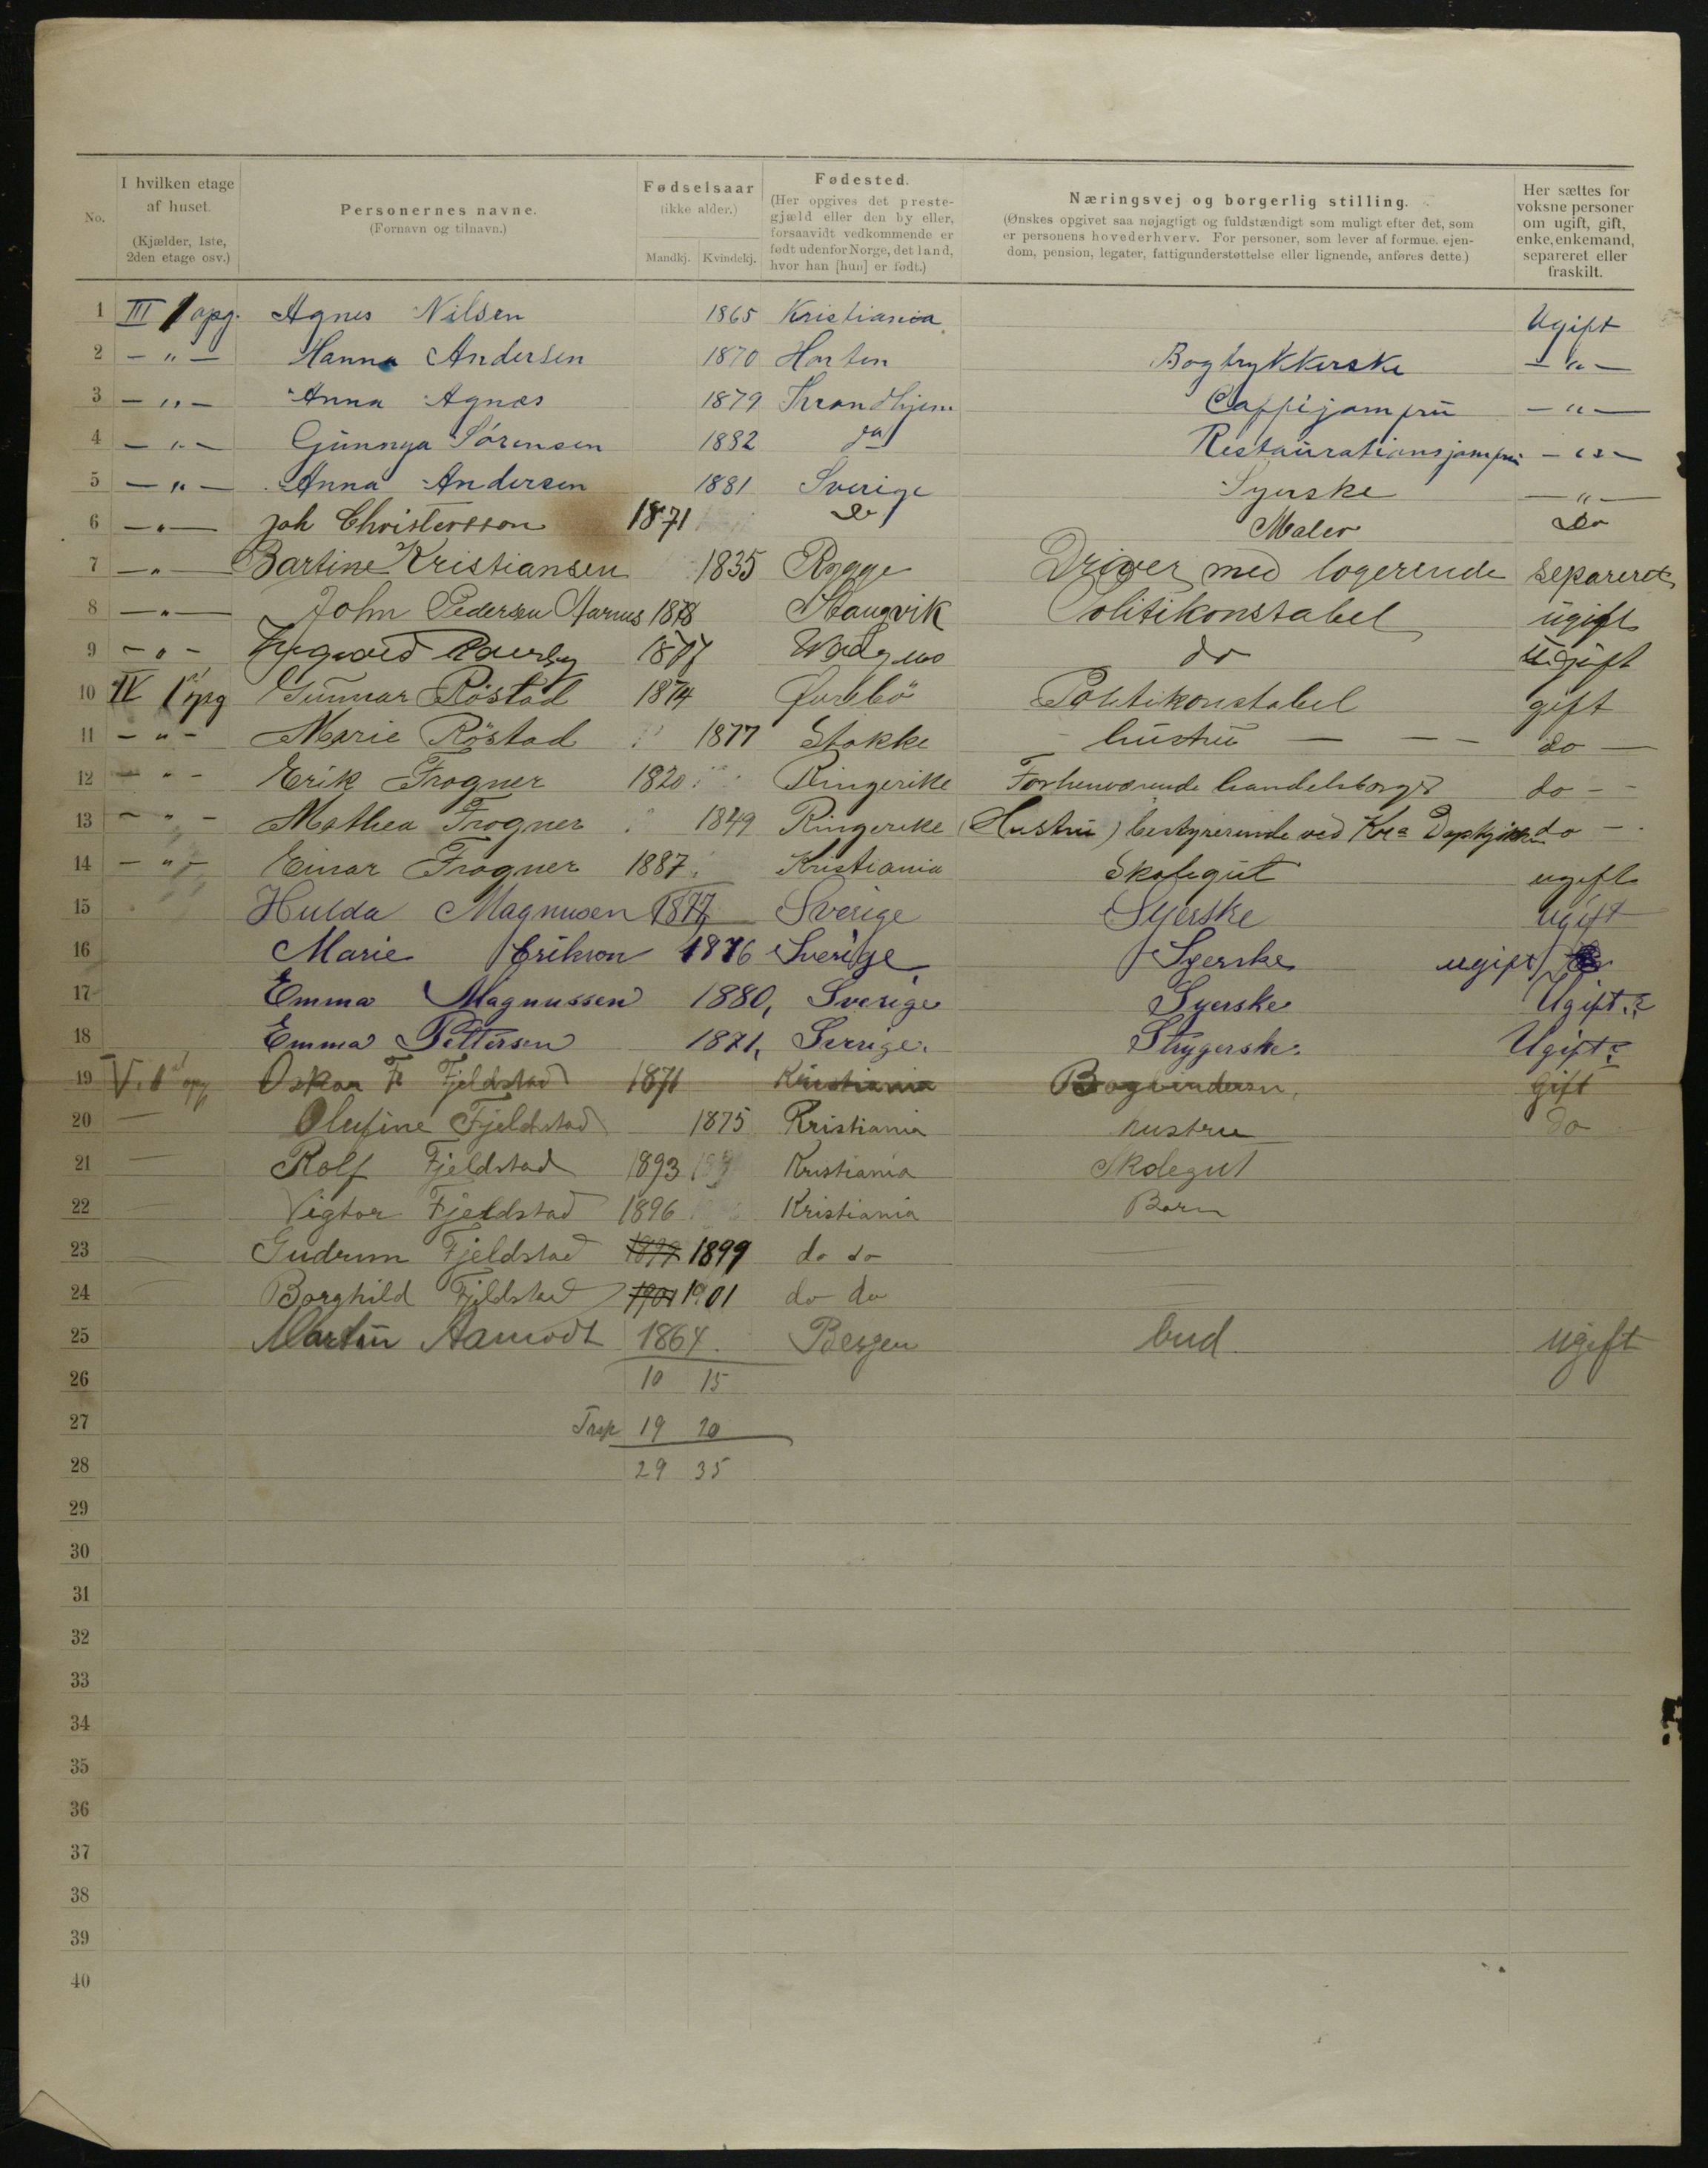 No.
I hvilken etage af huset. (Kjælder, 1ste, 2den etage osv.)
Personernes navne. (Fornavn og tilnavn.)
Fødselsaar (ikke alder.) Mandkj. Kvindekj.
Fødested. (Her opgives det prestegjæld eller den by eller, forsaavidt vedkommende er født udenfor Norge, det land, hvor han [hun] er født.)
Næringsvej og borgerlig stilling. (Ønskes opgivet saa nøjagtigt og fuldstændigt som muligt efter det, som er personens hovederhverv. For personer, som lever af formue, ejendom, pension, legater, fattigunderstøttelse eller lignende, anføres dette.)
Her sættes for voksne personer om ugift, gift, enke, enkemand, separeret eller fraskilt.
1 III 1 opg. Agnes Nilsen 1865 Kristiania Ugift
2 — " — Hanna Andersen 1870 Horten Bogtrykkerske — " —
3 — " — Anna Agnæs 1879 Throndhjem Caffijomfru — " —
4 — " — Gunnya Sörensen 1882 do Restaurationsjomfru — " —
5 — " — Anna Andersen 1881 Sverige Syerske — " —
6 — " — Joh Christersson 1871 do Maler do
7 — " — Bartine Kristiansen 1835 Rygge Driver med logerende separeret
8 — " — John Pedersen Aarnes 1878 Stangvik Politikonstabel ugift
9 — " — 1877 do Ugift
10 IV 1 opg Gunnar Röstad 1874 Øvrebö Politikonstabel gift
11 — " — Marie Röstad 1877 Stokke — hustru — — — do —
12 — " — Erik Frogner 1820 Ringerike Forhenværende handelsborger do —
13 — " — Mathea Frogner 1849 Ringerike (Hustru) bestyrerinde ved Kra do —
14 — " — Einar Frogner 1887 Kristiania Skolegut ugift
15 Hulda Magnusen 1877 Sverige Syerske ugift
16 Marie Erikson 1876 Sverige Syerske ugift
17 Emma Magnussen 1880, Sverige Syerske Ugift.
18 Emma Pettersen 1871, Sverige. Strygerske. Ugift
19 V. 1 opg Oskar Fr Fjeldstad 1871 Kristiania Bogbindersv, gift
20 — Olufine Fjeldstad 1875 Kristiania hustru do
21 — Rolf Fjeldstad 1893 Kristiania Skolegut
22 — Vigtor Fjeldstad 1896 Kristiania Barn
23 — Gudrun Fjeldstad 1899 1899 do do —
24 — Borghild Fjeldstad 1901 1901 do do —
25 Martin Aamodt 1864 Bergen bud ugift
26 10 15
27 Trsp 19 20
28 29 35
29
30
31
32
33
34
35
36
37
38
39
40